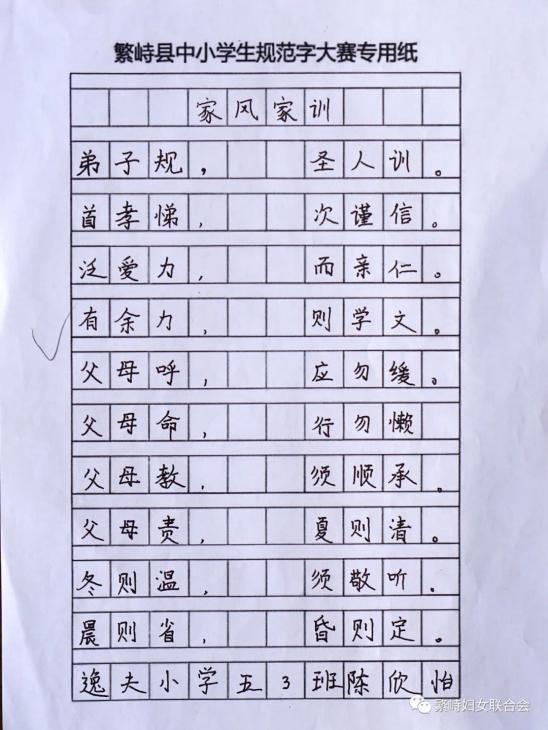 繁峙县中小学生规范字大赛专用纸
家风家训
弟子规， 圣人训。
首孝悌， 次谨信。
泛爱力， 而亲仁。
有余力， 则学文。
父母呼， 应勿缓。
父母命， 行勿懒
父母教， 须顺承。
父母责， 夏则清。
冬则温， 须敬听.
晨则省， 昏则定。
逸夫小学五3班陈欣怡
繁峙妇女联合会